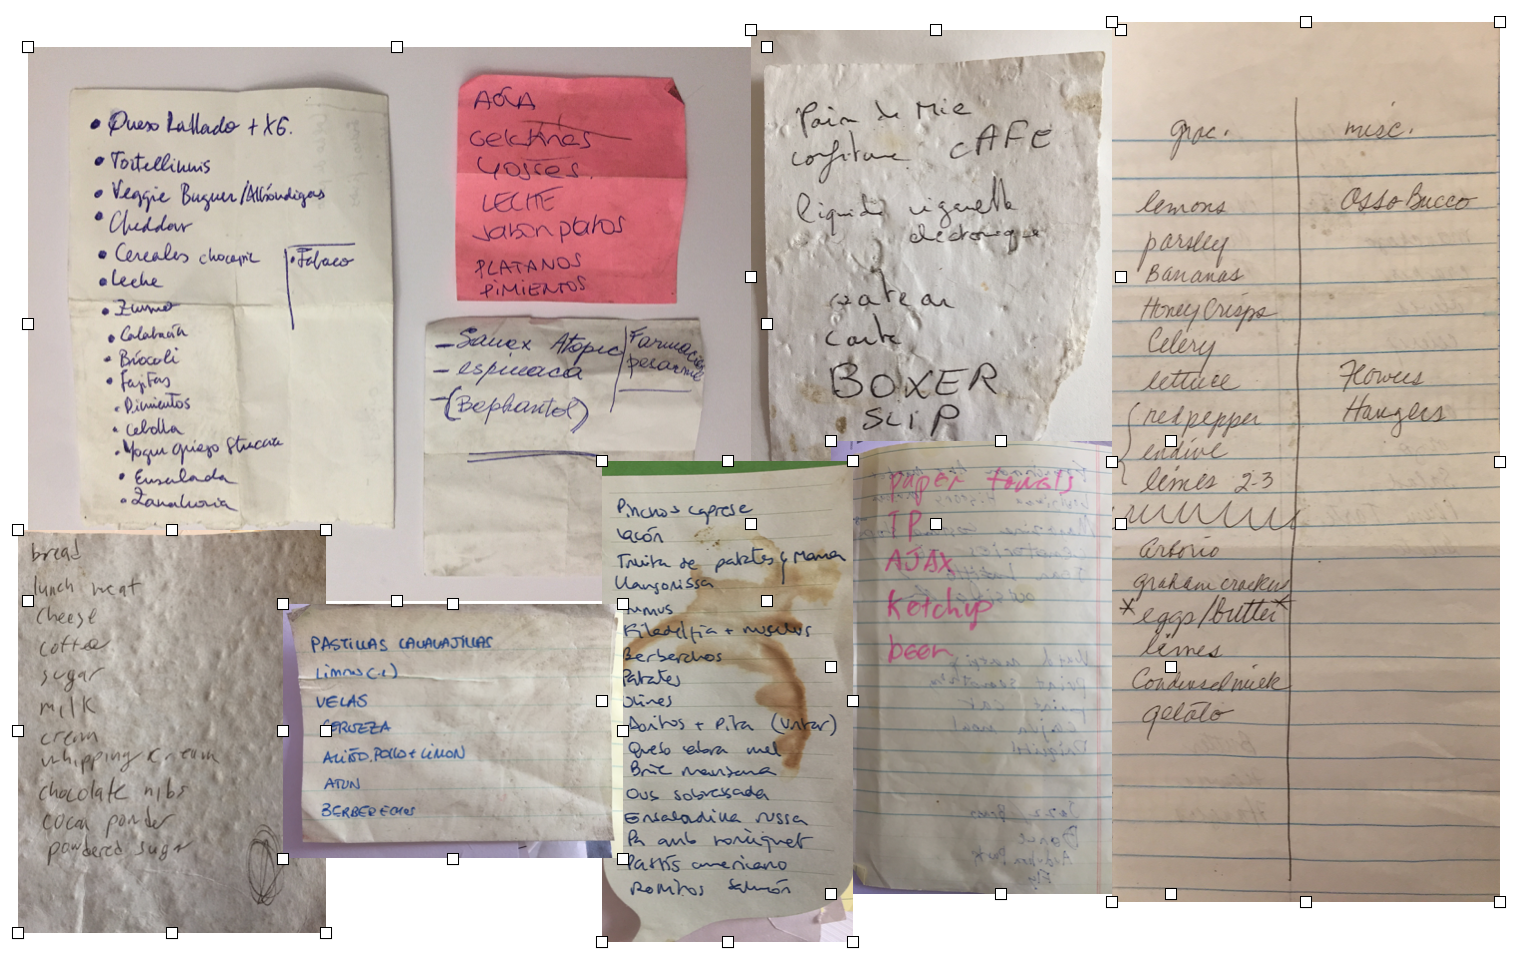 • Queso Rallado + X6.
• Tortellinnis
• Veggie Buguer/Albóndigas
• Cheddar
• Cereales chocapic
• Leche
• Zumo
• Calabacín
• Brócoli
• Fajitas
• Pimientos
• Cebolla
• Yogur griego
• Ensalada
• Zanahoria
• Tabaco
AGUA
Gelatinas
LECHE
Jabón platos
PLATANOS
PIMIENTOS
- Sanex Atopic
- espinaca
- (Bephantol)
Farmacia
Pain de Mie
confiture CAFE
liquide cigarette
électronique
gateau
carte
BOXER
SLIP
groc.
lemons
parsley
Bananas
HoneyCrisps
Celery
lettuce
red pepper
endive
limes 2-3
arborio
graham crackers
* eggs/butter *
limes
Condensed milk
gelato
misc.
Osso Bucco
Flowers
Hangers
bread
lunch meat
cheese
coffee
sugar
milk
cream
whipping cream
chocolate nibs
cocoa powder
powdered sugar
PASTILLAS LAVAVAJILLAS
VELAS
CERVEZA
ALIÑO, POLLO + LIMON
ATUN
BERBERECHOS
Pinchos caprese
Lacón
Truita de patates y Mama
Llangonissa
Humus
Filadelfia + nuseluos
Berberchos
Patates
Olives
Doritos + Pita (untar)
Queso cabra mel
Brie manzana
Ous sobressada
Ensaladilla russa
Pa amb tomàquet
Pastís americano
Rollitos Salmón
paper towels
TP
AJAX
Ketchup
beer